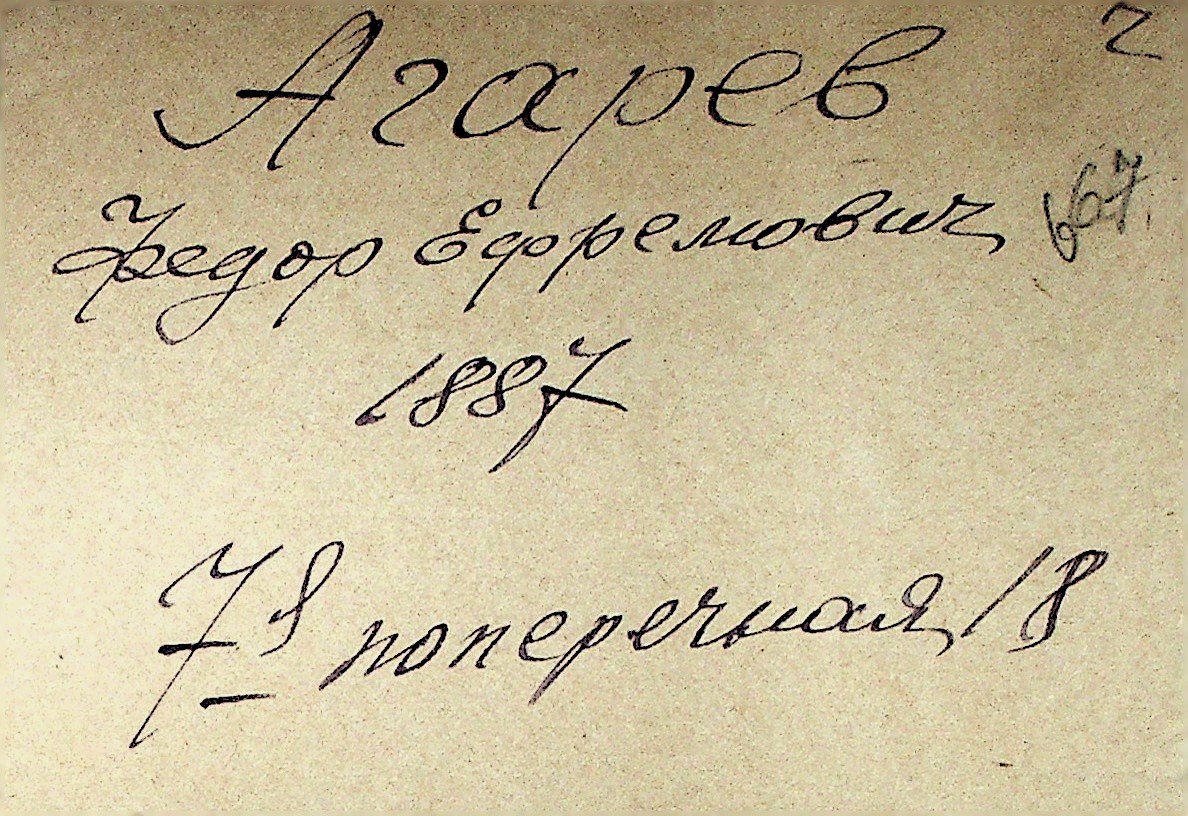 Агарев
2
Федор Ефремович
667
1887
7я поперечная, 18